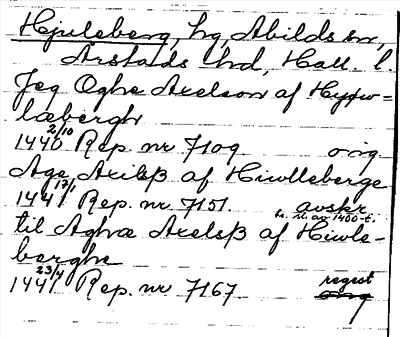 Hjuleberg, hg, Abilds sn,
Årstads hd, Hall. l.
Jeg Oghe Axelson af Hyww=
læbergh
1440 2/10 Rep. nr 7109 orig
Age Axilß af Hiwlleberge
1441 17/1 Rep. nr. 7151. avskr.
fr. sl. av 1400-t.
til Aghæ Axelsß af Hiwle-
berghe
1441 23/4 Rep. nr 7167. regest
orig